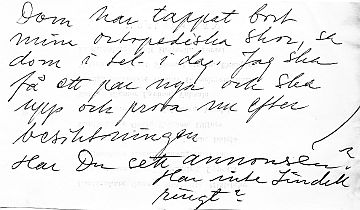 Dom har tappat bort
mina ortopediska skor, sa
dom i tel. i dag. Jag ska
få ett par nya och ska
upp och prova nu efter
besiktningen
Har Du sett annonsen?
Har inte Lindell
ringt?